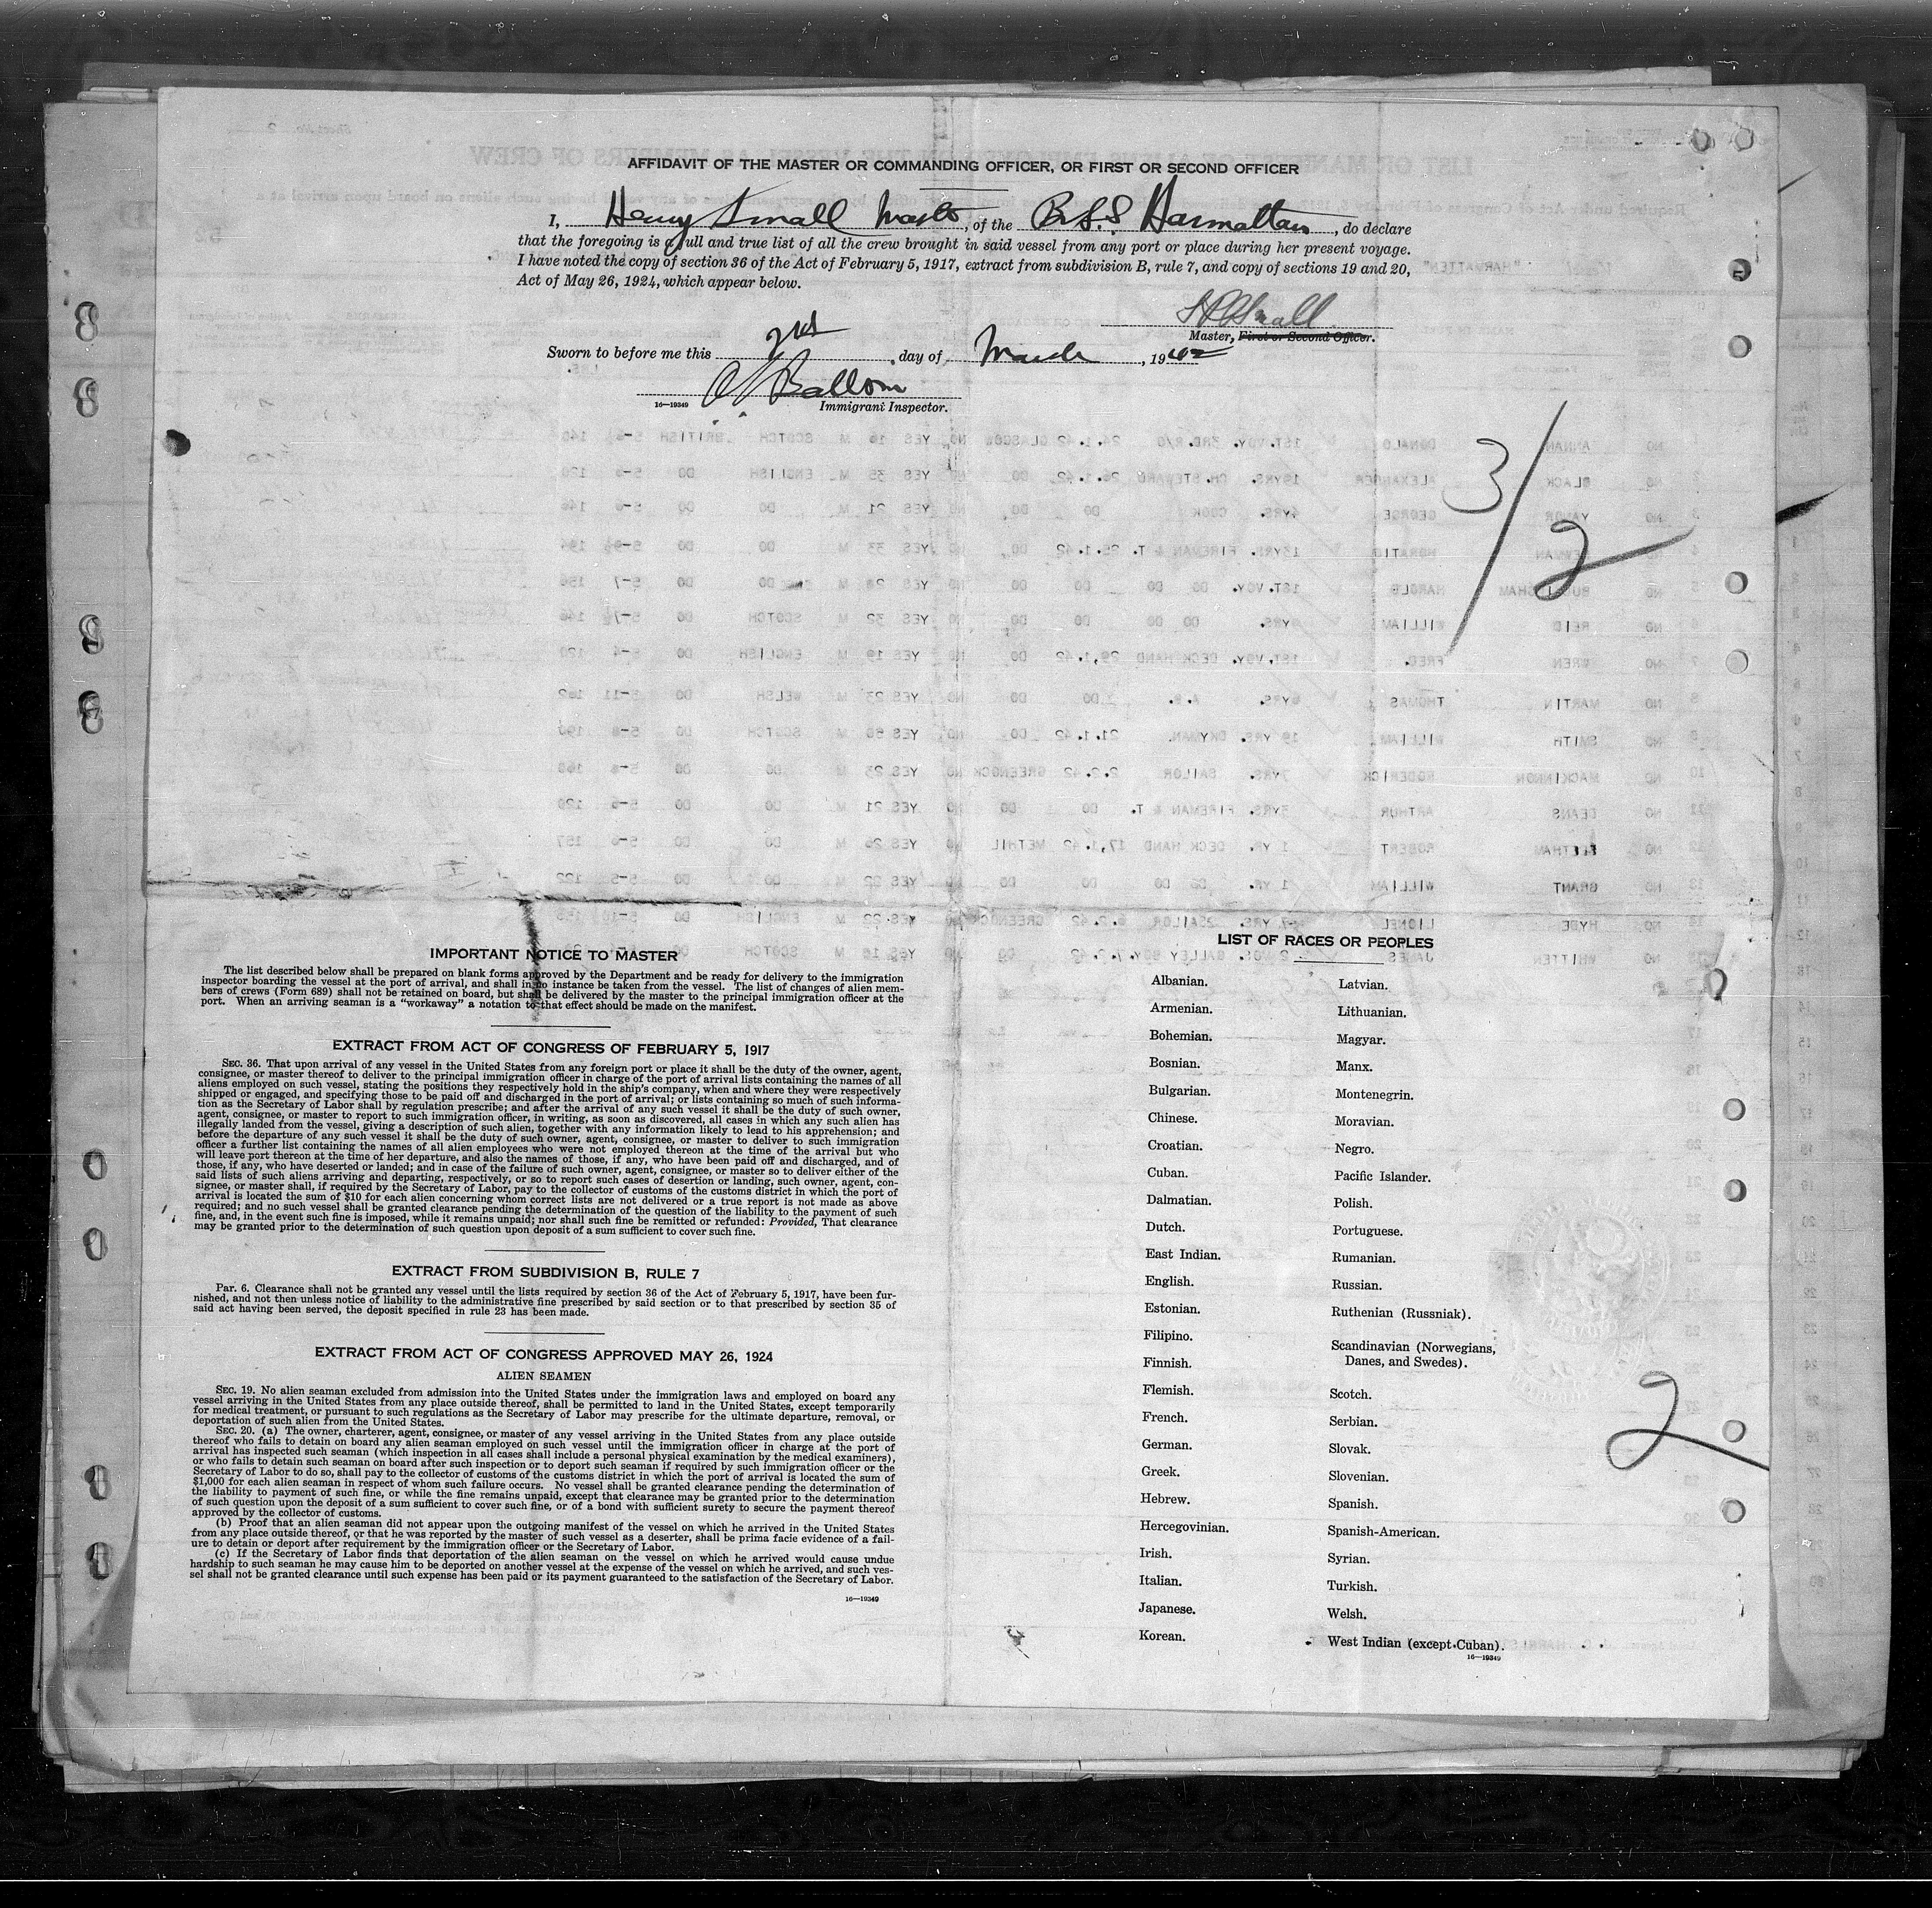 AFFIDAVIT OF THE MASTER OR COMMANDING OFFICER, OR FIRST OR SECOND OFFICER
I, Henry Small Master, of the Br. S.S. Harmattan, do declare
that the foregoing is a full and true list of all the crew brought in said vessel from any port or place during her present voyage.
I have noted the copy of section 36 of the Act of February 5, 1917, extract from subdivision B, rule 7, and copy of sections 19 and 20,
Act of May 26, 1924, which appear below.
H Small
Master, First or Second Officer.
Sworn to before me this 2nd day of March, 1942
16—19349 Immigrant Inspector.
3/2
IMPORTANT NOTICE TO MASTER
The list described below shall be prepared on blank forms approved by the Department and be ready for delivery to the immigration
inspector boarding the vessel at the port of arrival, and shall in no instance be taken from the vessel. The list of changes of alien mem-
bers of crews (Form 689) shall not be retained on board, but shall be delivered by the master to the principal immigration officer at the
port. When an arriving seaman is a "workaway" a notation to that effect should be made on the manifest.
EXTRACT FROM ACT OF CONGRESS OF FEBRUARY 5, 1917
SEC. 36. That upon arrival of any vessel in the United States from any foreign port or place it shall be the duty of the owner, agent,
consignee, or master thereof to deliver to the principal immigration officer in charge of the port of arrival lists containing the names of all
aliens employed on such vessel, stating the positions they respectively hold in the ship's company, when and where they were respectively
shipped or engaged, and specifying those to be paid off and discharged in the port of arrival; or lists containing so much of such informa-
tion as the Secretary of Labor shall by regulation prescribe; and after the arrival of any such vessel it shall be the duty of such owner,
agent, consignee, or master to report to such immigration officer, in writing, as soon as discovered, all cases in which any such alien has
illegally landed from the vessel, giving a description of such alien, together with any information likely to lead to his apprehension; and
before the departure of any such vessel it shall be the duty of such owner, agent, consignee, or master to deliver to such immigration
officer a further list containing the names of all alien employees who were not employed thereon at the time of the arrival but who
will leave port thereon at the time of her departure, and also the names of those, if any, who have been paid off and discharged, and of
those, if any, who have deserted or landed; and in case of the failure of such owner, agent, consignee, or master so to deliver either of the
said lists of such aliens arriving and departing, respectively, or so to report such cases of desertion or landing, such owner, agent, con-
signee, or master shall, if required by the Secretary of Labor, pay to the collector of customs of the customs district in which the port of
arrival is located the sum of $10 for each alien concerning whom correct lists are not delivered or a true report is not made as above
required; and no such vessel shall be granted clearance pending the determination of the question of the liability to the payment of such
fine, and, in the event such fine is imposed, while it remains unpaid; nor shall such fine be remitted or refunded: Provided, That clearance
may be granted prior to the determination of such question upon deposit of a sum sufficient to cover such fine.
EXTRACT FROM SUBDIVISION B, RULE 7
Par. 6. Clearance shall not be granted any vessel until the lists required by section 36 of the Act of February 5, 1917, have been fur-
nished, and not then unless notice of liability to the administrative fine prescribed by said section or to that prescribed by section 35 of
said act having been served, the deposit specified in rule 23 has been made.
EXTRACT FROM ACT OF CONGRESS APPROVED MAY 26, 1924
ALIEN SEAMEN
SEC. 19. No alien seaman excluded from admission into the United States under the immigration laws and employed on board any
vessel arriving in the United States from any place outside thereof, shall be permitted to land in the United States, except temporarily
for medical treatment, or pursuant to such regulations as the Secretary of Labor may prescribe for the ultimate departure, removal, or
deportation of such alien from the United States.
SEC. 20. (a) The owner, charterer, agent, consignee, or master of any vessel arriving in the United States from any place outside
thereof who fails to detain on board any alien seaman employed on such vessel until the immigration officer in charge at the port of
arrival has inspected such seaman (which inspection in all cases shall include a personal physical examination by the medical examiners),
or who fails to detain such seaman on board after such inspection or to deport such seaman if required by such immigration officer or the
Secretary of Labor to do so, shall pay to the collector of customs of the customs district in which the port of arrival is located the sum of
$1,000 for each alien seaman in respect of whom such failure occurs. No vessel shall be granted clearance pending the determination of
the liability to payment of such fine, or while the fine remains unpaid, except that clearance may be granted prior to the determination
of such question upon the deposit of a sum sufficient to cover such fine, or of a bond with sufficient surety to secure the payment thereof
approved by the collector of customs.
(b) Proof that an alien seaman did not appear upon the outgoing manifest of the vessel on which he arrived in the United States
from any place outside thereof, or that he was reported by the master of such vessel as a deserter, shall be prima facie evidence of a fail-
ure to detain or deport after requirement by the immigration officer or the Secretary of Labor.
(c) If the Secretary of Labor finds that deportation of the alien seaman on the vessel on which he arrived would cause undue
hardship to such seaman he may cause him to be deported on another vessel at the expense of the vessel on which he arrived, and such ves-
sel shall not be granted clearance until such expense has been paid or its payment guaranteed to the satisfaction of the Secretary of Labor.
16—19349
LIST OF RACES OR PEOPLES
Albanian.
Armenian.
Bohemian.
Bosnian.
Bulgarian.
Chinese.
Croatian.
Cuban.
Dalmatian.
Dutch.
East Indian.
English.
Estonian.
Filipino.
Finnish.
Flemish.
French.
German.
Greek.
Hebrew.
Hercegovinian.
Irish.
Italian.
Japanese.
Korean.
Latvian.
Lithuanian.
Magyar.
Manx.
Montenegrin.
Moravian.
Negro.
Pacific Islander.
Polish.
Portuguese.
Rumanian.
Russian.
Ruthenian (Russniak).
Scandinavian (Norwegians,
Danes, and Swedes).
Scotch.
Serbian.
Slovak.
Slovenian.
Spanish.
Spanish-American.
Syrian.
Turkish.
Welsh.
West Indian (except Cuban).
16—19349
2